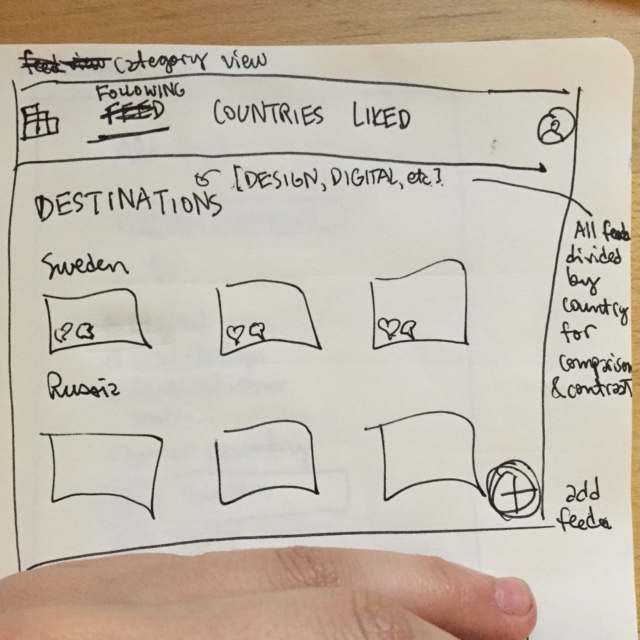 feed view category view
FOLLOWING
FEED COUNTRIES LIKED
DESTINATIONS or [DESIGN, DIGITAL, etc.]
Sweden
Russia
All feeds
divided
by
country
for
comparison
& contrast
add
feeds